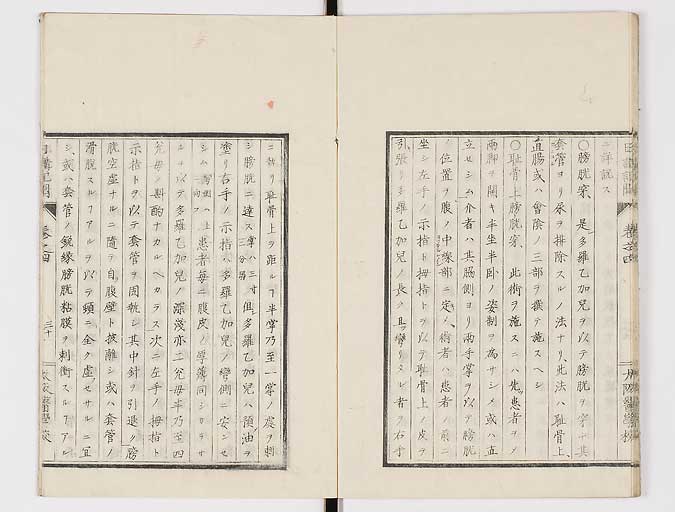 ニ詳説ス
〇膀胱穿 是多羅乙加兒ヲ以テ膀胱ヲ穿テ其
套管ヨリ尿ヲ排除スルノ法ナリ此法ハ耻骨上
直腸或ハ會陰ノ三部ヲ撰テ施スヘシ
〇耻骨上膀胱穿 此術ヲ施スニハ先患者ヲノ
兩脚ヲ開キ半坐半卧ノ姿制ヲ為サシメ或ハ直
立セシム介者ハ其脇側ヨリ兩手掌ヲ以テ膀胱
ノ位置ヲ腹ノ中線部ニ定ム術者ハ患者ノ前ニ
坐シ左手ノ示指ト拇指トヲ以テ耻骨上ノ皮ヲ
引張リ多羅乙加兒ノ長ク且彎リタル者ヲ右手
ニ執リ耻骨上ヲ距ルヿ半掌乃至一掌ノ處ヲ刺
シ膀胱ニ達ス掌ハ三寸三分 但シ多羅乙加兒ハ預油ヲ
塗リ右手ノ示指ハ多羅乙加兒ノ彎側ニ安ンセ
シム 患者毎ニ腹皮ノ厚薄同シカラサ
ルヲ以テ多羅乙加兒ノ深淺亦二兊毋半乃至四
兊毋ノ斟酌ナカルヘカラス次ニ左手ノ拇指ト
示指トヲ以テ套管ヲ固執シ其中針ヲ引退ク膀
胱空虚ナルニ隨テ自腹壁ト披離シ或ハ套管ノ
滑脱スルヿアルヲ以テ頓ニ全ク虚セサルニ宜
シ或ハ套管ノ鋭縁膀胱粘膜ヲ刺衝スルヿアル
巻之四
三十
大阪醫學校